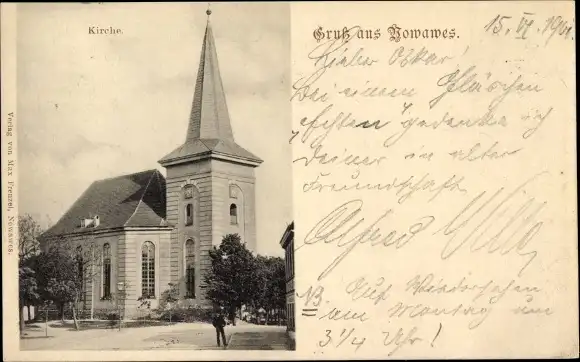 Kirche.
Gruß aus Nowawes.
15. VI. 1901.
Lieber Oskar!
Bei einem Gläschen
„echten" gedenke ich
Deiner in alter
Freundschaft
Alfred
NB. Auf Wiedersehen
am Montag um
3¼ Uhr!
Verlag von Max Frenzel, Nowawes.